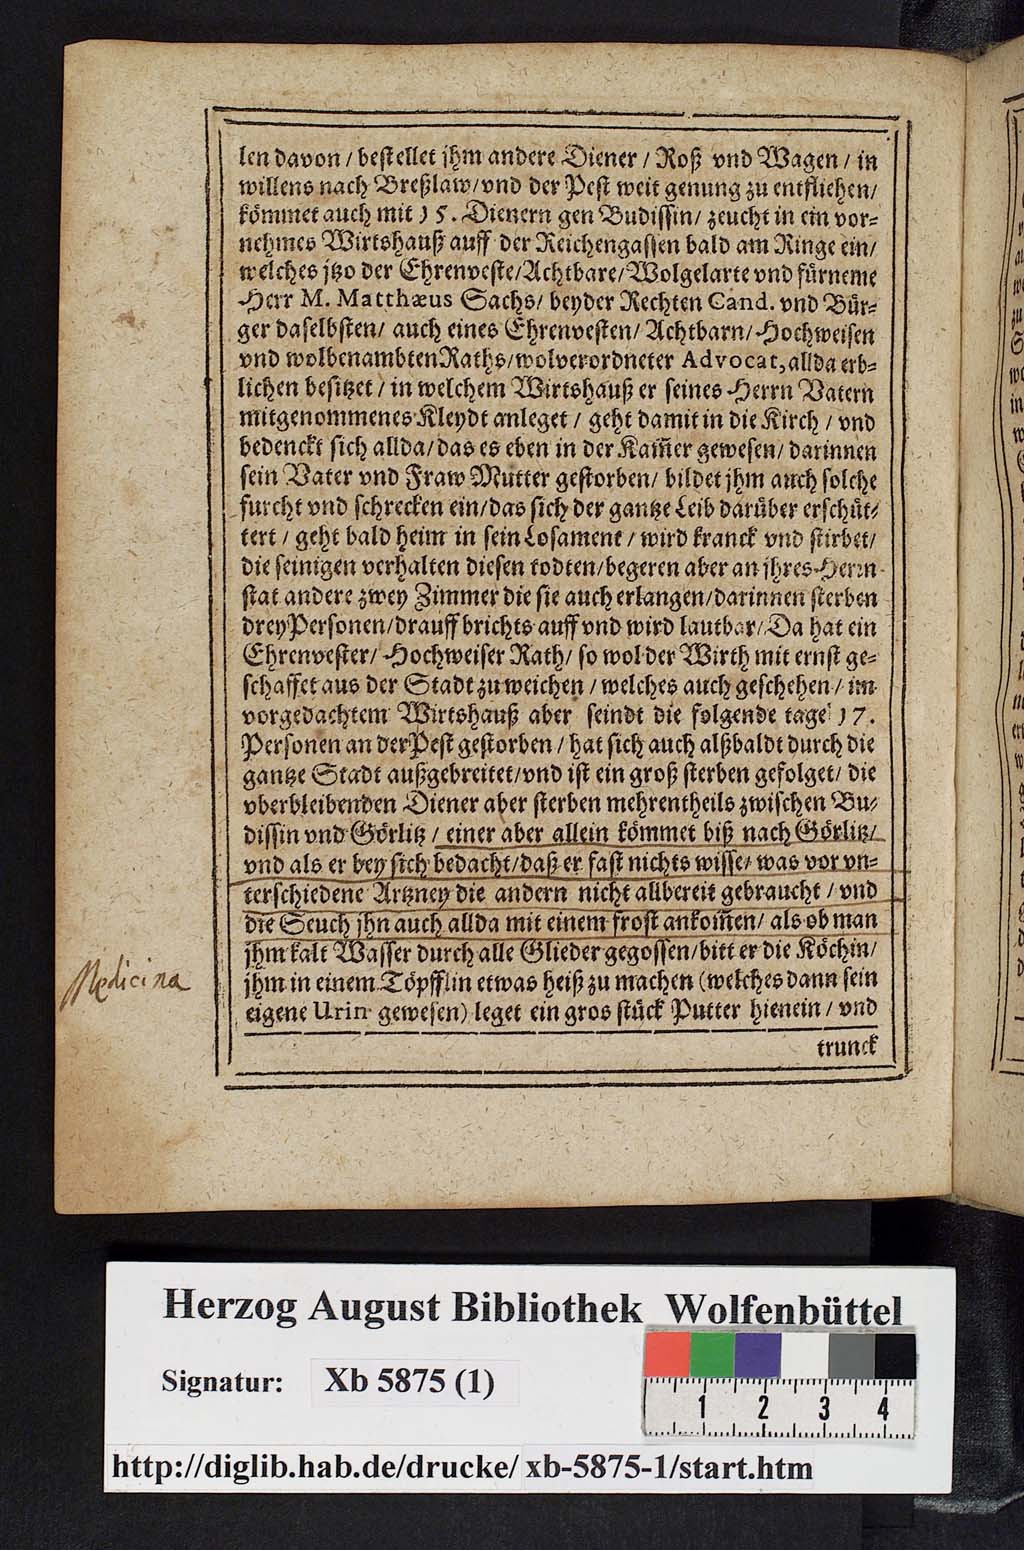 len davon / bestellet jhm andere Diener / Roß vnd Wagen / in
willens nach Breßlaw / vnd der Pest weit genung zu entfliehen /
kömmet auch mit 15. Dienern gen Budissin / zeucht in ein vor=
nehmes Wirtshauß auff der Reichengassen bald am Ringe ein /
welches jtzo der Ehrenveste / Achtbare / Wolgelarte vnd fürneme
Herr M. Matthæus Sachs / beyder Rechten Cand. vnd Bür=
ger daselbsten / auch eines Ehrenvesten / Achtbarn / Hochweisen
vnd wolbenambten Raths / wolverordneter Advocat, allda erb=
lichen besitzet / in welchem Wirtshauß er seines Herrn Vatern
mitgenommenes Kleydt anleget / geht damit in die Kirch / vnd
bedenckt sich allda / das es eben in der Kam̃er gewesen / darinnen
sein Vater vnd Fraw Mutter gestorben / bildet jhm auch solche
furcht vnd schrecken ein / das sich der gantze Leib darüber erschüt=
tert / geht bald heim in sein Losament / wird kranck vnd stirbet /
die seinigen verhalten diesen todten / begeren aber an jhres Herrn
stat andere zwey Zimmer die sie auch erlangen / darinnen sterben
drey Personen / drauff brichts auff vnd wird lautbar / Da hat ein
Ehrenvester / Hochweiser Rath / so wol der Wirth mit ernst ge=
schaffet aus der Stadt zu weichen / welches auch geschehen / im
vorgedachtem Wirtshauß aber seindt die folgende tage 17.
Personen an der Pest gestorben / hat sich auch alßbaldt durch die
gantze Stadt außgebreitet / vnd ist ein groß sterben gefolget / die
vberbleibenden Diener aber sterben mehrentheils zwischen Bu=
dissin vnd Görlitz / einer aber allein kömmet biß nach Görlitz /
vnd als er bey sich bedacht / daß er fast nichts wisse / was vor vn=
terschiedene Artzney die andern nicht allbereit gebraucht / vnd
die Seuch jhn auch allda mit einem frost ankom̃en / als ob man
jhm kalt Wasser durch alle Glieder gegossen / bitt er die Köchin /
Medicina
jhm in einem Töpfflin etwas heiß zu machen (welches dann sein
eigene Urin gewesen) leget ein gros stück Putter hienein / vnd
trunck
Herzog August Bibliothek Wolfenbüttel
Signatur: Xb 5875 (1)
1 2 3 4
http://diglib.hab.de/drucke/ xb-5875-1/start.htm